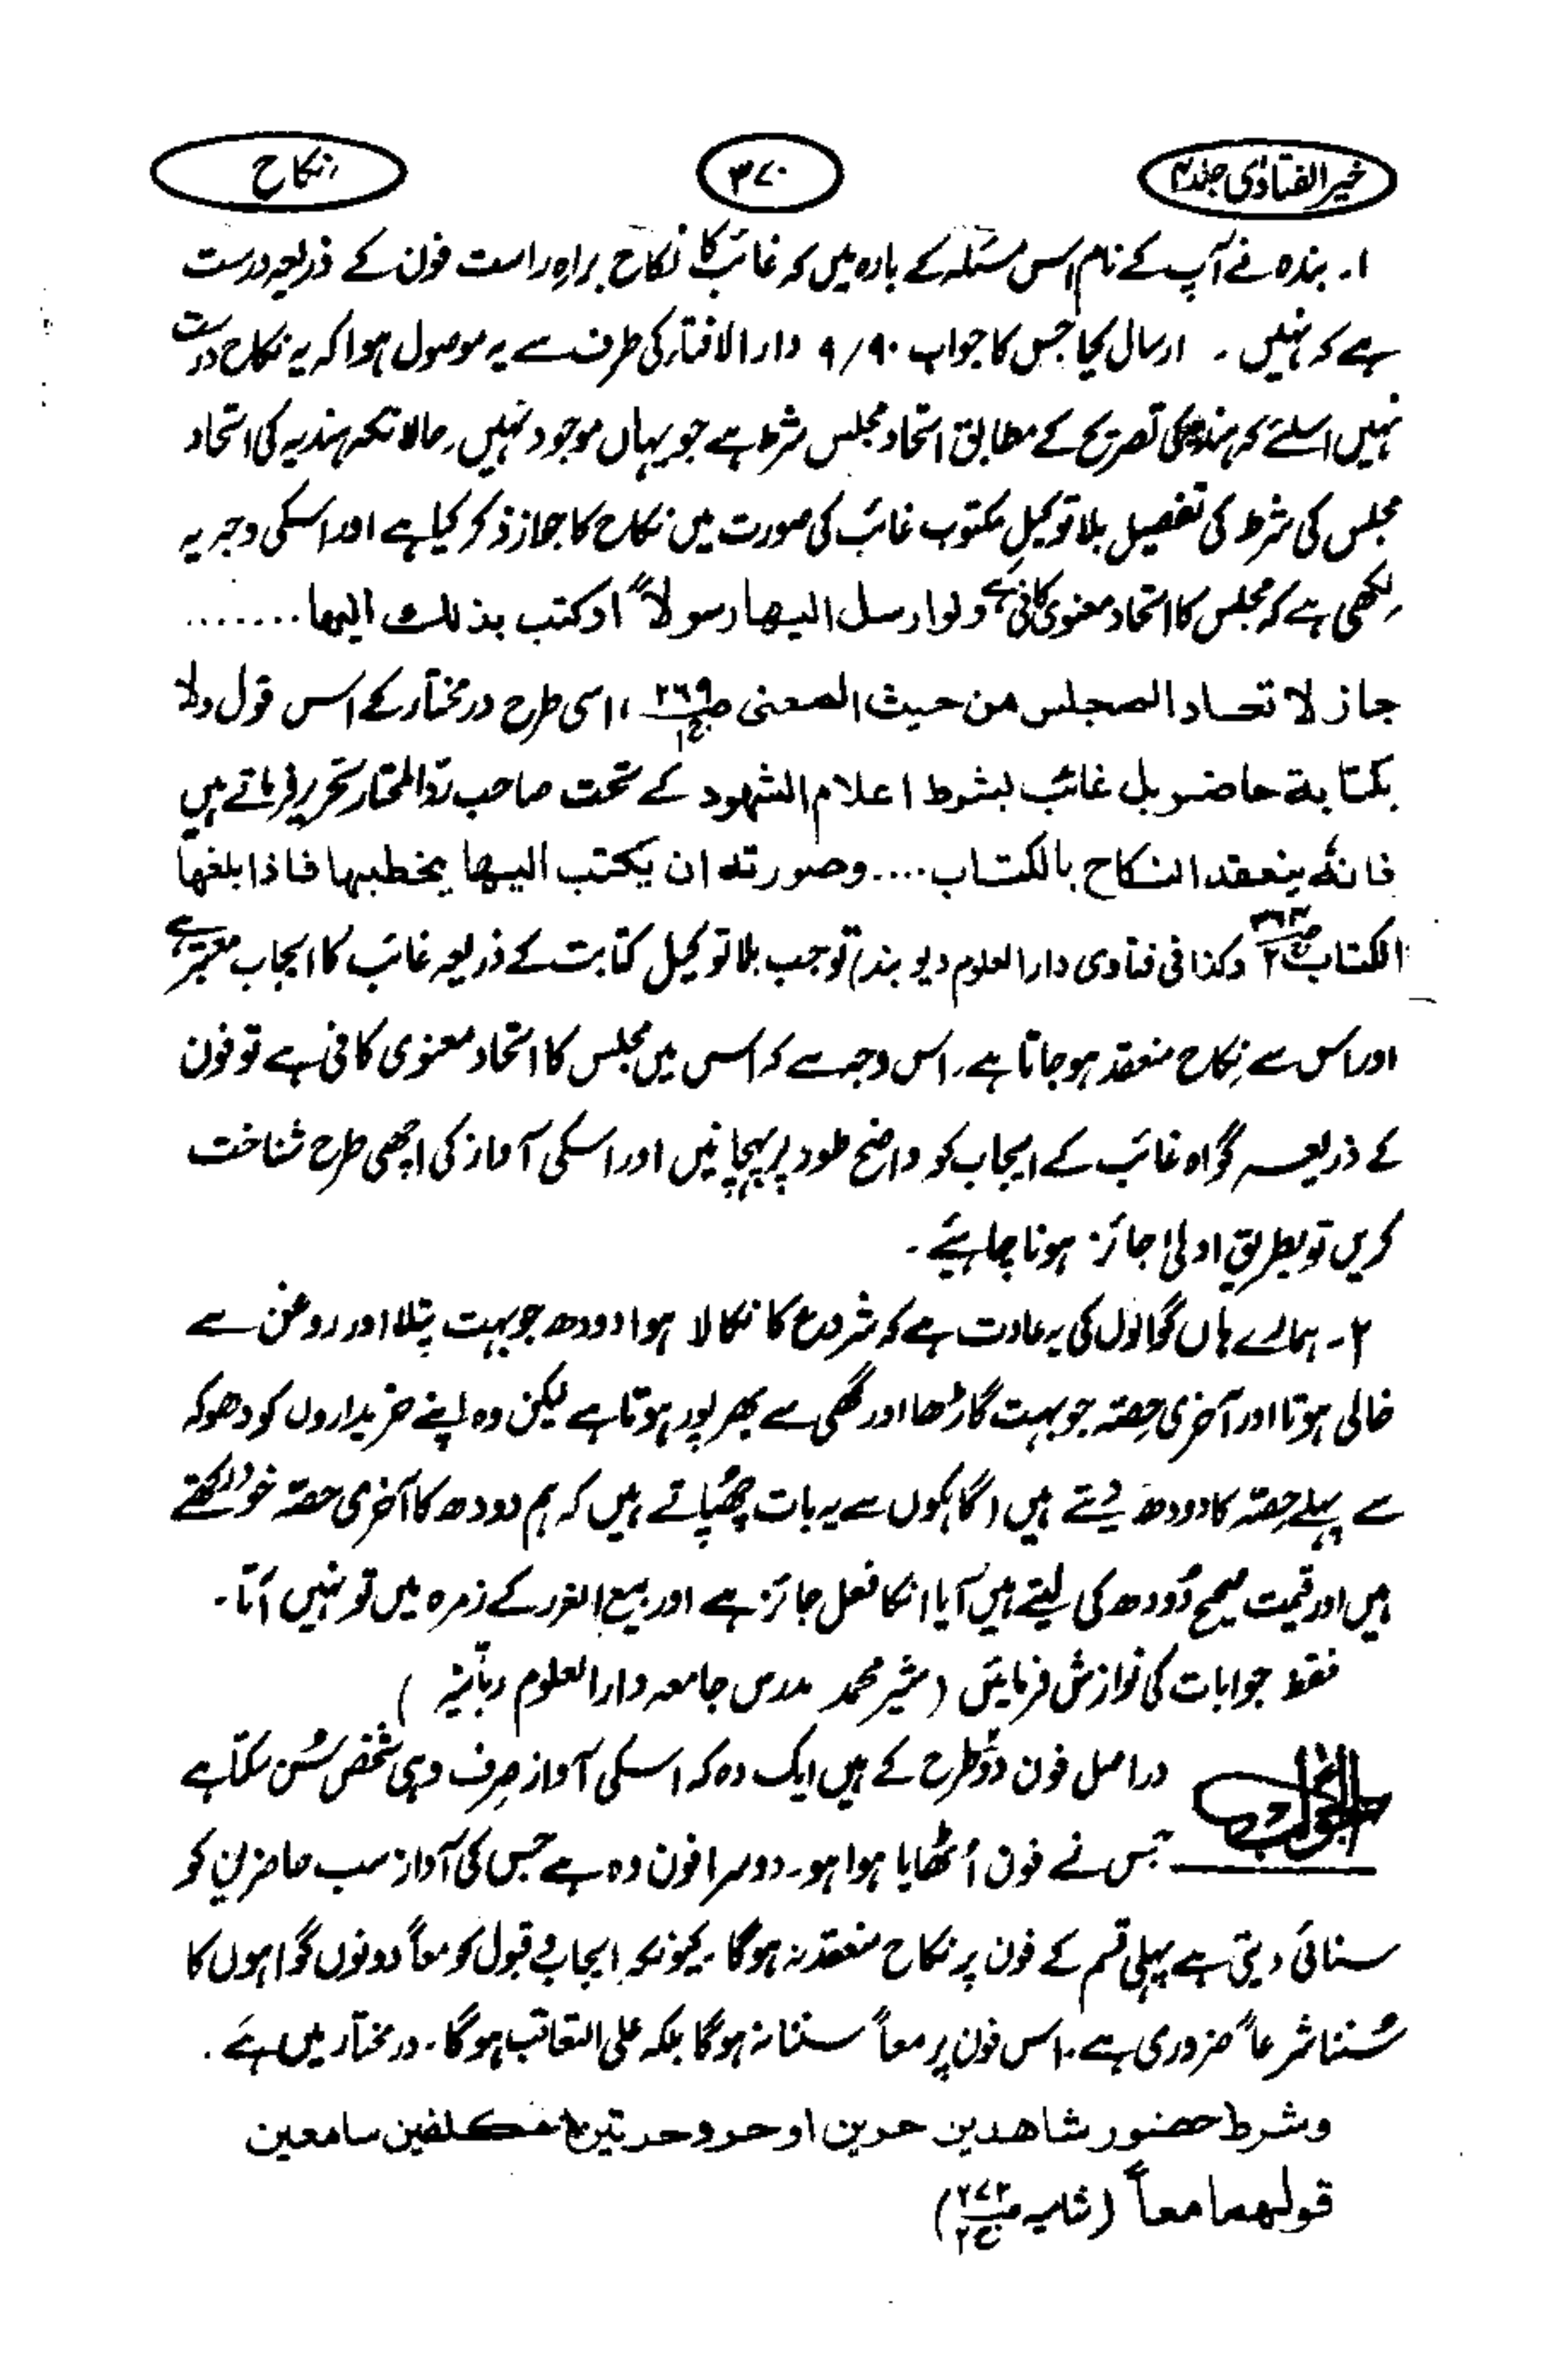 خیر الفتاوٰی جلد ۴
۳۷۰
نکاح
۱۔ بندہ نے آپ کے نام اس مسئلہ کے بارہ میں کہ غائب کا نکاح براہِ راست فون کے ذریعہ درست
ہے کہ نہیں ۔ ارسال کیا جس کا جواب ۹/۹۰ دارالافتاء کی طرف سے یہ موصول ہوا کہ یہ نکاح درست
نہیں اسلئے کہ ہندیہ کی تصریح کے مطابق اتحاد مجلس شرط ہے جو یہاں موجود نہیں، حالانکہ ہندیہ کی اتحاد
مجلس کی شرط کی تفصیل بلا توکیل مکتوب غائب کی صورت میں نکاح کا جواز ذکر کیا ہے اور اسکی وجہ یہ
لکھی ہے کہ مجلس کا اتحاد معنوی کافی ہے ولو ارسل الیھا رسولاً او کتب بذلك الیھا .......
جاز لاتحاد المجلس من حیث المعنی ص۲۶۹ ج۱، اسی طرح در مختار کے اس قول ولا
بکتابة حاضر بل غائب بشرط اعلام الشهود کے تحت صاحب ردّ المختار تحریر فرماتے ہیں
فانہٗ ینعقد النکاح بالکتاب .... وصورته ان یکتب الیها یخطبها فاذا بلغها
الکتاب ج۲ وکذا فی فتاوی دار العلوم دیوبند) تو جب بلا توکیل کتابت کے ذریعہ غائب کا ایجاب معتبر ہے
اور اس سے نکاح منعقد ہو جاتا ہے، اس وجہ سے کہ اس میں مجلس کا اتحاد معنوی کافی ہے تو فون
کے ذریعہ گواہ غائب کے ایجاب کو واضح طور پر پہچانیں اور اسکی آواز کی اچھی طرح شناخت
کریں تو بطریقِ اولیٰ جائز ہونا چاہیئے ۔
۲۔ ہمارے ہاں گوالوں کی یہ عادت ہے کہ شروع کا نکالا ہوا دودھ جو بہت پتلا اور روغن سے
خالی ہوتا اور آخری حصّہ جو بہت گاڑھا اور گھی سے بھر پور ہوتا ہے لیکن وہ اپنے خریداروں کو دھوکہ
سے پہلے حصّہ کا دودھ دیتے ہیں (گاہکوں سے یہ بات چھُپاتے ہیں کہ ہم دودھ کا آخری حصّہ خود رکھتے
ہیں اور قیمت صحیح دُودھ کی لیتے ہیں آیا انکا فعل جائز ہے اور بیع الغرر کے زمرہ میں تو نہیں آتا۔
فقط جوابات کی نوازش فرمائیں (مشیر محمد مدرس جامعہ دار العلوم ربانیہ )
الجواب دراصل فون دو طرح کے ہیں ایک وہ کہ اسکی آواز صرف وہی شخص سُن سکتا ہے
جس نے فون اُٹھایا ہوا ہو۔ دوسرا فون وہ ہے جس کی آواز سب حاضرین کو
سنائی دیتی ہے پہلی قسم کے فون پر نکاح منعقد نہ ہوگا، کیونکہ ایجاب و قبول کو معاً دونوں گواہوں کا
سُننا شرعاً ضروری ہے، اس فون پر معاً سننا نہ ہوگا بلکہ علی التعاقب ہوگا۔ در مختار میں ہے ۔
وشرط حضور شاهدین حرین او حر وحرتین مکلفین سامعین
قولهما معاً (شامیہ ص۲۷۲ ج۲)